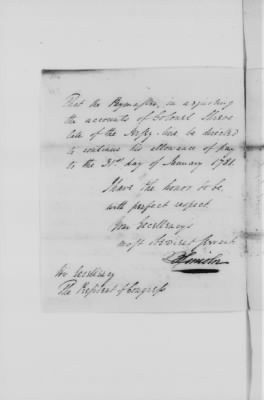 That the Paymaster, in adjusting
the accounts of Colonel Shreve
late of the be directed
to continue his allowance of pay
to the 31st day of January 1781.
I have the honor to be
with perfect respect
Your Excellency's
most obedient Servant
His Excellency
The President of Congress